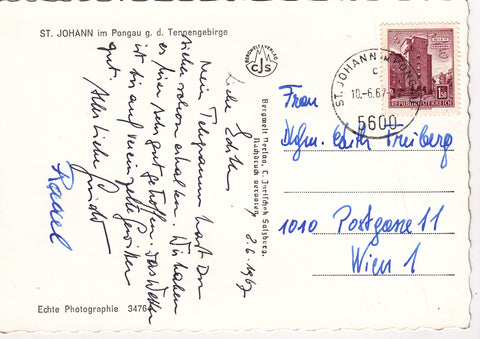 ST. JOHANN im Pongau g. d. Tennengebirge
BERGWELT VERLAG
CJS
ST. JOHANN IM PONGAU
c
10.-6.67
5600
REPUBLIK ÖSTERREICH
Bergwelt Verlag, C. Jurischek Salzburg.
Nachdruck verboten
8.6.1967
Liebe Edith!
Mein Telegramm hast Du
sicher schon erhalten. Wir haben
es hier sehr gut getroffen. Das Wetter
ist bis auf vereinzelte Gewitter
gut. Alles Liebe
Frau
Dkfm. Edith Freiberg
1010 Postgasse 11
Wien 1
Echte Photographie 3476